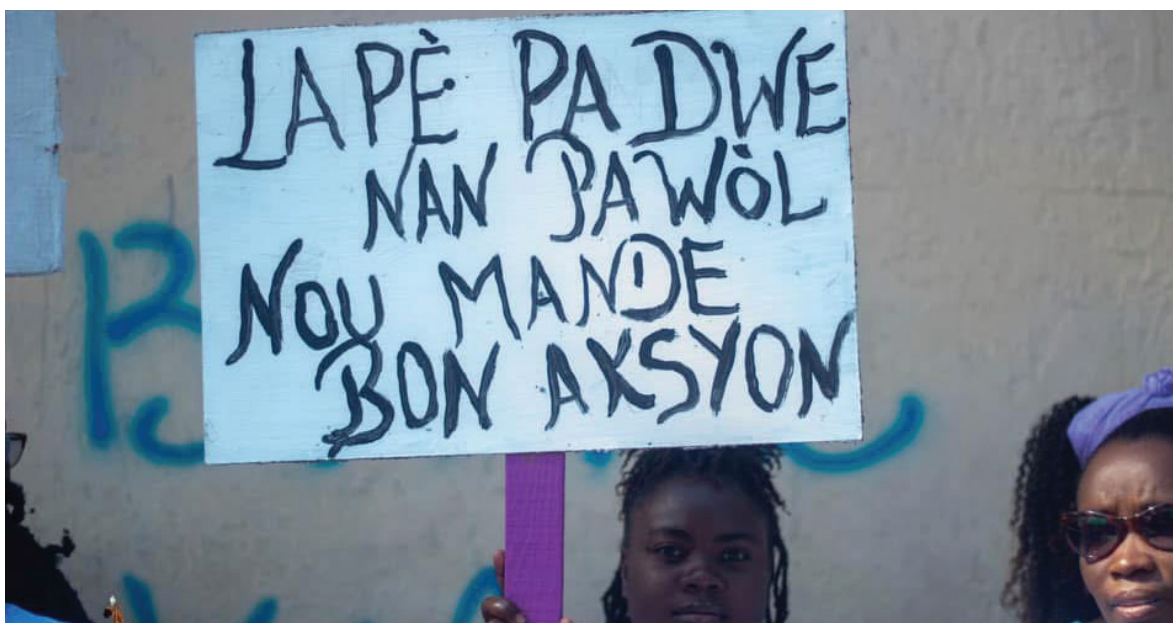 LAPÈ PA DWE
NAN PAWÒL
NOU MANDE
BON AKSYON